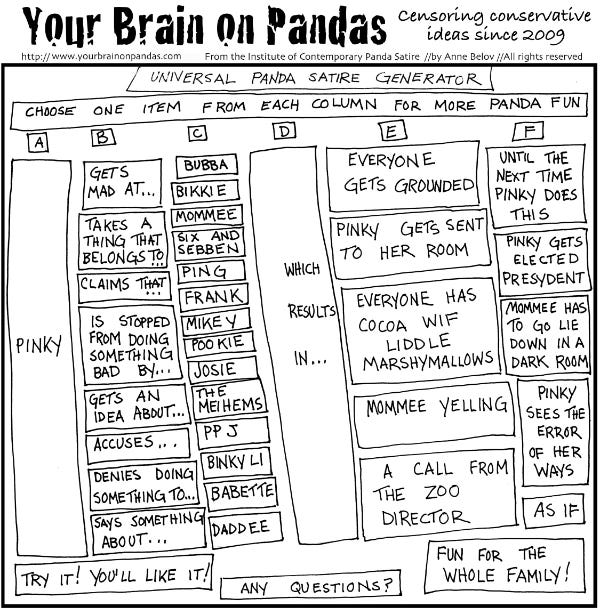 Your Brain on Pandas
Censoring conservative
ideas since 2009
http://www.yourbrainonpandas.com From the Institute of Contemporary Panda Satire //by Anne Belov //All rights reserved
UNIVERSAL PANDA SATIRE GENERATOR
CHOOSE ONE ITEM FROM EACH COLUMN FOR MORE PANDA FUN
A
B
C
D
E
F
PINKY
GETS
MAD AT...
TAKES A
THING THAT
BELONGS TO...
CLAIMS THAT...
IS STOPPED
FROM DOING
SOMETHING
BAD BY...
GETS AN
IDEA ABOUT...
ACCUSES...
DENIES DOING
SOMETHING TO...
SAYS SOMETHING
ABOUT...
BUBBA
BIKKIE
MOMMEE
SIX AND
SEBBEN
PING
FRANK
MIKEY
POOKIE
JOSIE
THE
MEIHEMS
PPJ
BINKY LI
BABETTE
DADDEE
WHICH
RESULTS
IN...
EVERYONE
GETS GROUNDED
PINKY GETS SENT
TO HER ROOM
EVERYONE HAS
COCOA WIF
LIDDLE
MARSHYMALLOWS
MOMMEE YELLING
A CALL FROM
THE ZOO
DIRECTOR
UNTIL THE
NEXT TIME
PINKY DOES
THIS
PINKY GETS
ELECTED
PRESYDENT
MOMMEE HAS
TO GO LIE
DOWN IN A
DARK ROOM
PINKY
SEES THE
ERROR
OF HER
WAYS
AS IF
TRY IT! YOU'LL LIKE IT!
ANY QUESTIONS?
FUN FOR THE
WHOLE FAMILY!